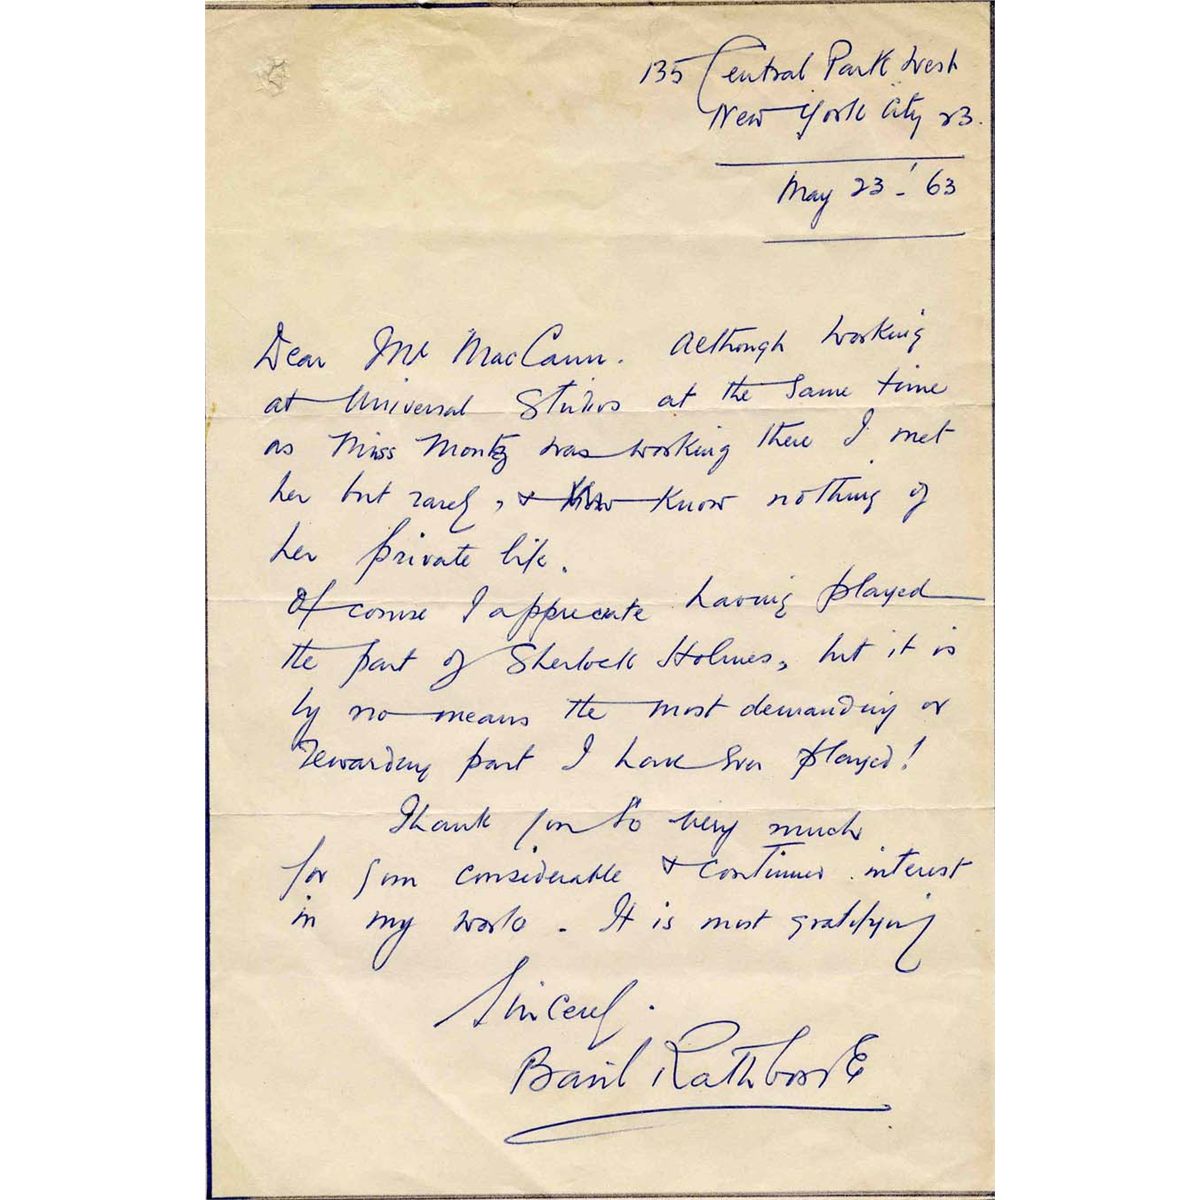 135 Central Park West
New York City 23.
May 23 - '63
Dear Mr MacCann. Although working
at Universal Studios at the same time
as Miss Montez was working there I met
her but rarely, & know nothing of
her private life.
Of course I appreciate having played
the part of Sherlock Holmes, but it is
by no means the most demanding or
rewarding part I have ever played!
Thank you so very much
for your considerable & continued interest
in my work. It is most gratifying
Sincerely.
Basil Rathbone